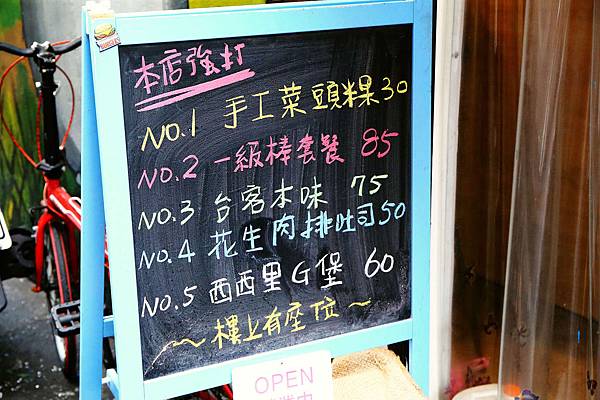 本店強打
NO.1 手工菜頭粿30
NO.2 一級棒套餐 85
NO.3 台客本味 75
NO.4 花生肉排吐司50
NO.5 西西里G堡 60
～樓上有座位～
OPEN